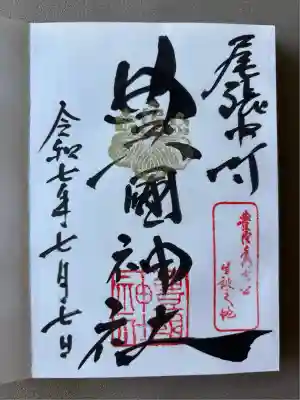 尾張中村
豊國神社
豊國
神社
豊臣秀吉公
生誕之地
令和七年七月七日